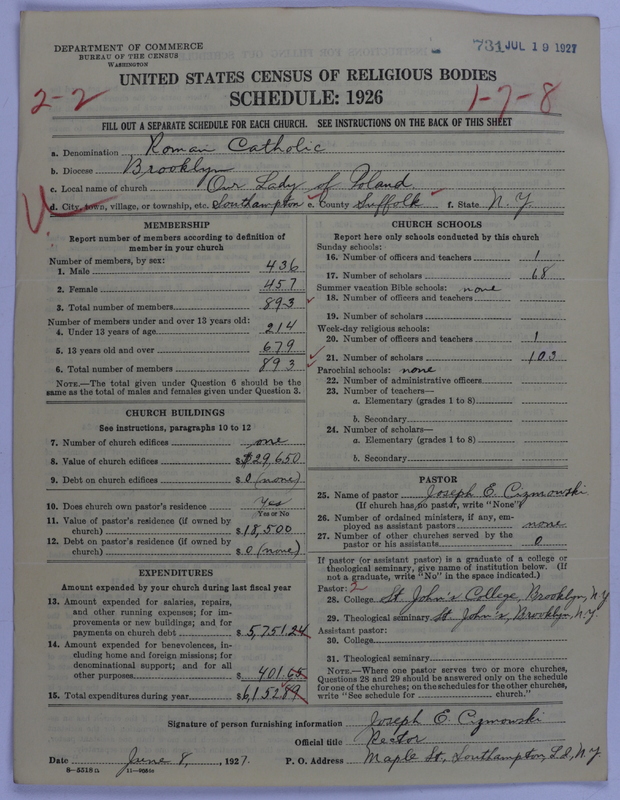 DEPARTMENT OF COMMERCE
BUREAU OF THE CENSUS
WASHINGTON
731 JUL 19 1927
UNITED STATES CENSUS OF RELIGIOUS BODIES
SCHEDULE: 1926
2-2
1-7-8
FILL OUT A SEPARATE SCHEDULE FOR EACH CHURCH. SEE INSTRUCTIONS ON THE BACK OF THIS SHEET
a. Denomination Roman Catholic
b. Diocese Brooklyn
c. Local name of church Our Lady of Poland
d. City, town, village, or township, etc. Southampton e. County Suffolk f. State N. Y.
MEMBERSHIP
Report number of members according to definition of
member in your church
Number of members, by sex:
1. Male 436
2. Female 457
3. Total number of members 893
Number of members under and over 13 years old:
4. Under 13 years of age 214
5. 13 years old and over 679
6. Total number of members 893
NOTE.—The total given under Question 6 should be the
same as the total of males and females given under Question 3.
CHURCH BUILDINGS
See instructions, paragraphs 10 to 12
7. Number of church edifices one
8. Value of church edifices $ $29,650
9. Debt on church edifices $ 0 (none)
10. Does church own pastor's residence Yes
Yes or No
11. Value of pastor's residence (if owned by
church) $ 18,500
12. Debt on pastor's residence (if owned by
church) $ 0 (none)
EXPENDITURES
Amount expended by your church during last fiscal year
13. Amount expended for salaries, repairs,
and other running expenses; for im-
provements or new buildings; and for
payments on church debt $ 5,751.24
14. Amount expended for benevolences, in-
cluding home and foreign missions; for
denominational support; and for all
other purposes $ 401.65
15. Total expenditures during year $ 6,152.89
CHURCH SCHOOLS
Report here only schools conducted by this church
Sunday schools:
16. Number of officers and teachers 1
17. Number of scholars 68
Summer vacation Bible schools: none
18. Number of officers and teachers
19. Number of scholars
Week-day religious schools:
20. Number of officers and teachers 1
21. Number of scholars 103
Parochial schools: none
22. Number of administrative officers
23. Number of teachers—
a. Elementary (grades 1 to 8)
b. Secondary
24. Number of scholars—
a. Elementary (grades 1 to 8)
b. Secondary
PASTOR
25. Name of pastor Joseph E. Cizmowski
(If church has no pastor, write "None")
26. Number of ordained ministers, if any, em-
ployed as assistant pastors none
27. Number of other churches served by the
pastor or his assistants 0
If pastor (or assistant pastor) is a graduate of a college or
theological seminary, give name of institution below. (If
not a graduate, write "No" in the space indicated.)
Pastor: 2
28. College St. John's College, Brooklyn, N.Y
29. Theological seminary St. John's, Brooklyn, N.Y.
Assistant pastor:
30. College
31. Theological seminary
NOTE.—Where one pastor serves two or more churches,
Questions 28 and 29 should be answered only on the schedule
for one of the churches; on the schedules for the other churches,
write "See schedule for church."
Signature of person furnishing information Joseph E. Cizmowski
Official title Rector
Date June 8, 1927. P. O. Address Maple St., Southampton, L.I., N.Y.
8-5518a